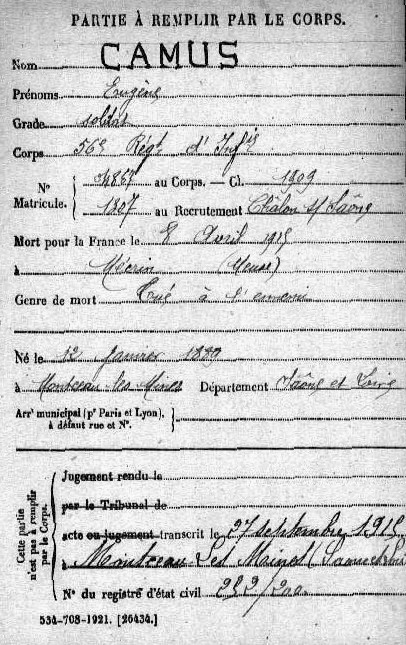 PARTIE À REMPLIR PAR LE CORPS.
Nom CAMUS
Prénoms Eugène
Grade soldat
Corps 56e Régt d'Infie
N° Matricule. { 4867 au Corps. — Cl. 1909
1807 au Recrutement Châlon s/ Saône
Mort pour la France le 8 Avril 1915
à Mécrin (Meuse)
Genre de mort Tué à l'ennemi
Né le 12 Janvier 1889
à Montceau-les-Mines Département Saône et Loire
Arrt municipal (pr Paris et Lyon),
à défaut rue et N°.
Cette partie n'est pas à remplir par le Corps.
Jugement rendu le
par le Tribunal de
acte ou jugement transcrit le 27 septembre 1915
à Montceau Les Mines (Saone et Loire
N° du registre d'état civil 223/200
534-708-1921. [26434.]